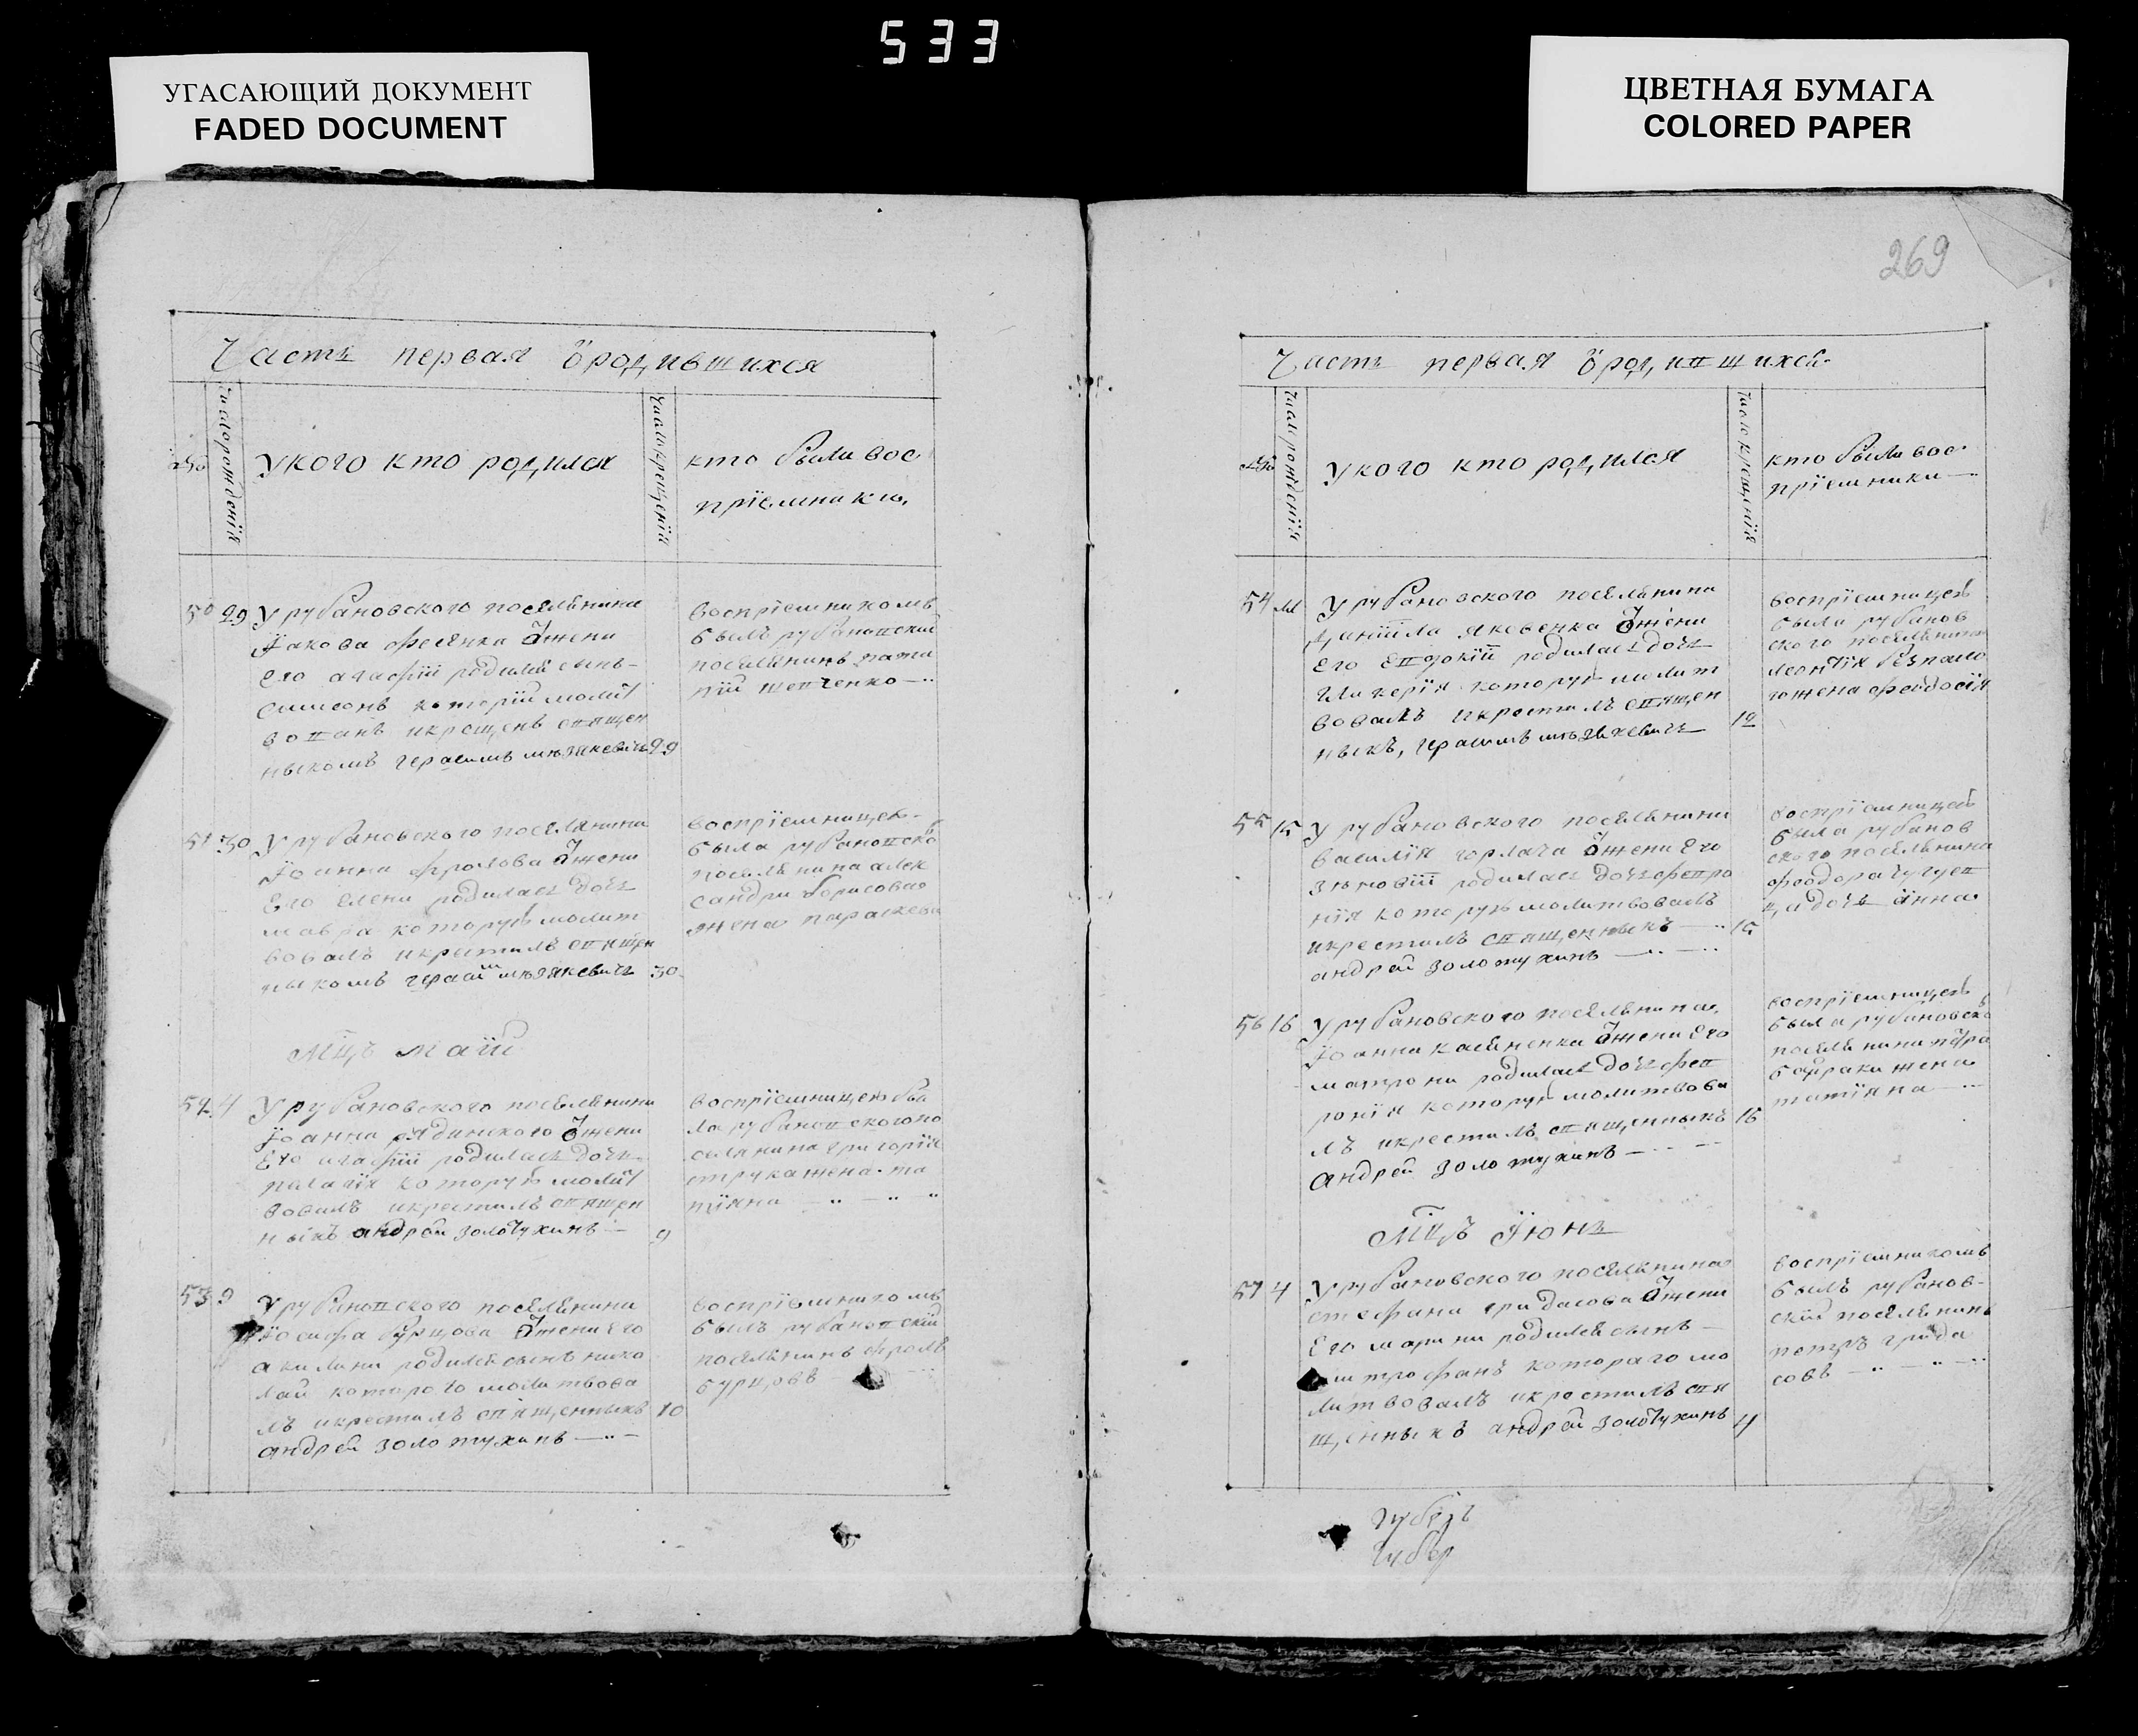 533
УГАСАЮЩИЙ ДОКУМЕНТ
FADED DOCUMENT
ЦВЕТНАЯ БУМАГА
COLORED PAPER
Часть первая ѽродившихся
число рожденія
У кого кто родился
число крещенія
кто были вос
пріемники
50 29 У рубановского поселянина
Іакова фесенка Ѿ жени
Его агафіи родился сынъ
симеонъ которій молит
вованъ икрещенъ священ
ныкомъ герасимъ мъзякевичь 29
воспріемникомъ
былъ рубановскій
поселянинъ
шевченко
51 30 У рубановского поселянина
Іоанна фролова Ѿ жени
Его елени родилась дочь
мавра которую молит
вовалъ икрестилъ священ
ныкомъ герасим мъзякевичь 30
воспріемницею
была рубановско
поселянина алек
сандри борисова
жена параскева
Мцъ маій
52 4 У рубановского поселянина
Іоанна рядинского Ѿ жени
Его агафіи родилась дочь
пилагія которую молит
вовалъ икрестилъ священ
ныкъ андрей золотухинъ 9
воспріемницею бы
ла рубановского по
селянина григорія
струка жена та
тіяна
53 9 У рубановского поселянина
Іосифа бурцова Ѿ жени Его
акилини родился сынъ нико
лай которого молитвова
лъ икрестилъ священныкъ 10
андрей золотухинъ
воспріемникомъ
былъ рубановскій
поселянинъ фролъ
бурцовъ
269
Часть первая ѽродившихся
число рожденія
У кого кто родился
число крещенія
кто были вос
пріемники
54 У рубановского поселянина
даніила яковенка Ѿ жени
Его Евдокіи родилась дочь
гликерія которую молит
вовалъ икрестилъ священ
ныкъ, герасимъ мъзякевичь 12
воспріемницею
была рубанов
ского поселянина
леонтія безпало
го жена феодосія
55 15 У рубановского поселянина
василія горлача Ѿ жени Его
зѣновіи родилась дочь февро
нія которую молитвовалъ
икрестилъ священныкъ 15
андрей золотухинъ
воспріемницею
была рубанов
ского поселянина
феодора чугуев
ца дочь анна
56 16 У рубановского поселянина
Іоанна касяненка Ѿ жени Его
матрони родилась дочь фев
ронія которую молитвова
лъ икрестилъ священныкъ 16
андрей золотухинъ
воспріемницею
была рубановско
поселянина петра
байраки жена
татіяна
Мцъ Іюнь
57 4 У рубановского поселянина
стефана гридасова Ѿ жени
Его марини родился сынъ
митрофанъ котораго мо
литвовалъ икрестилъ свя
щенныкъ андрей золотухинъ 4
воспріемникомъ
былъ рубанов
скій поселянинъ
петръ грида
совъ